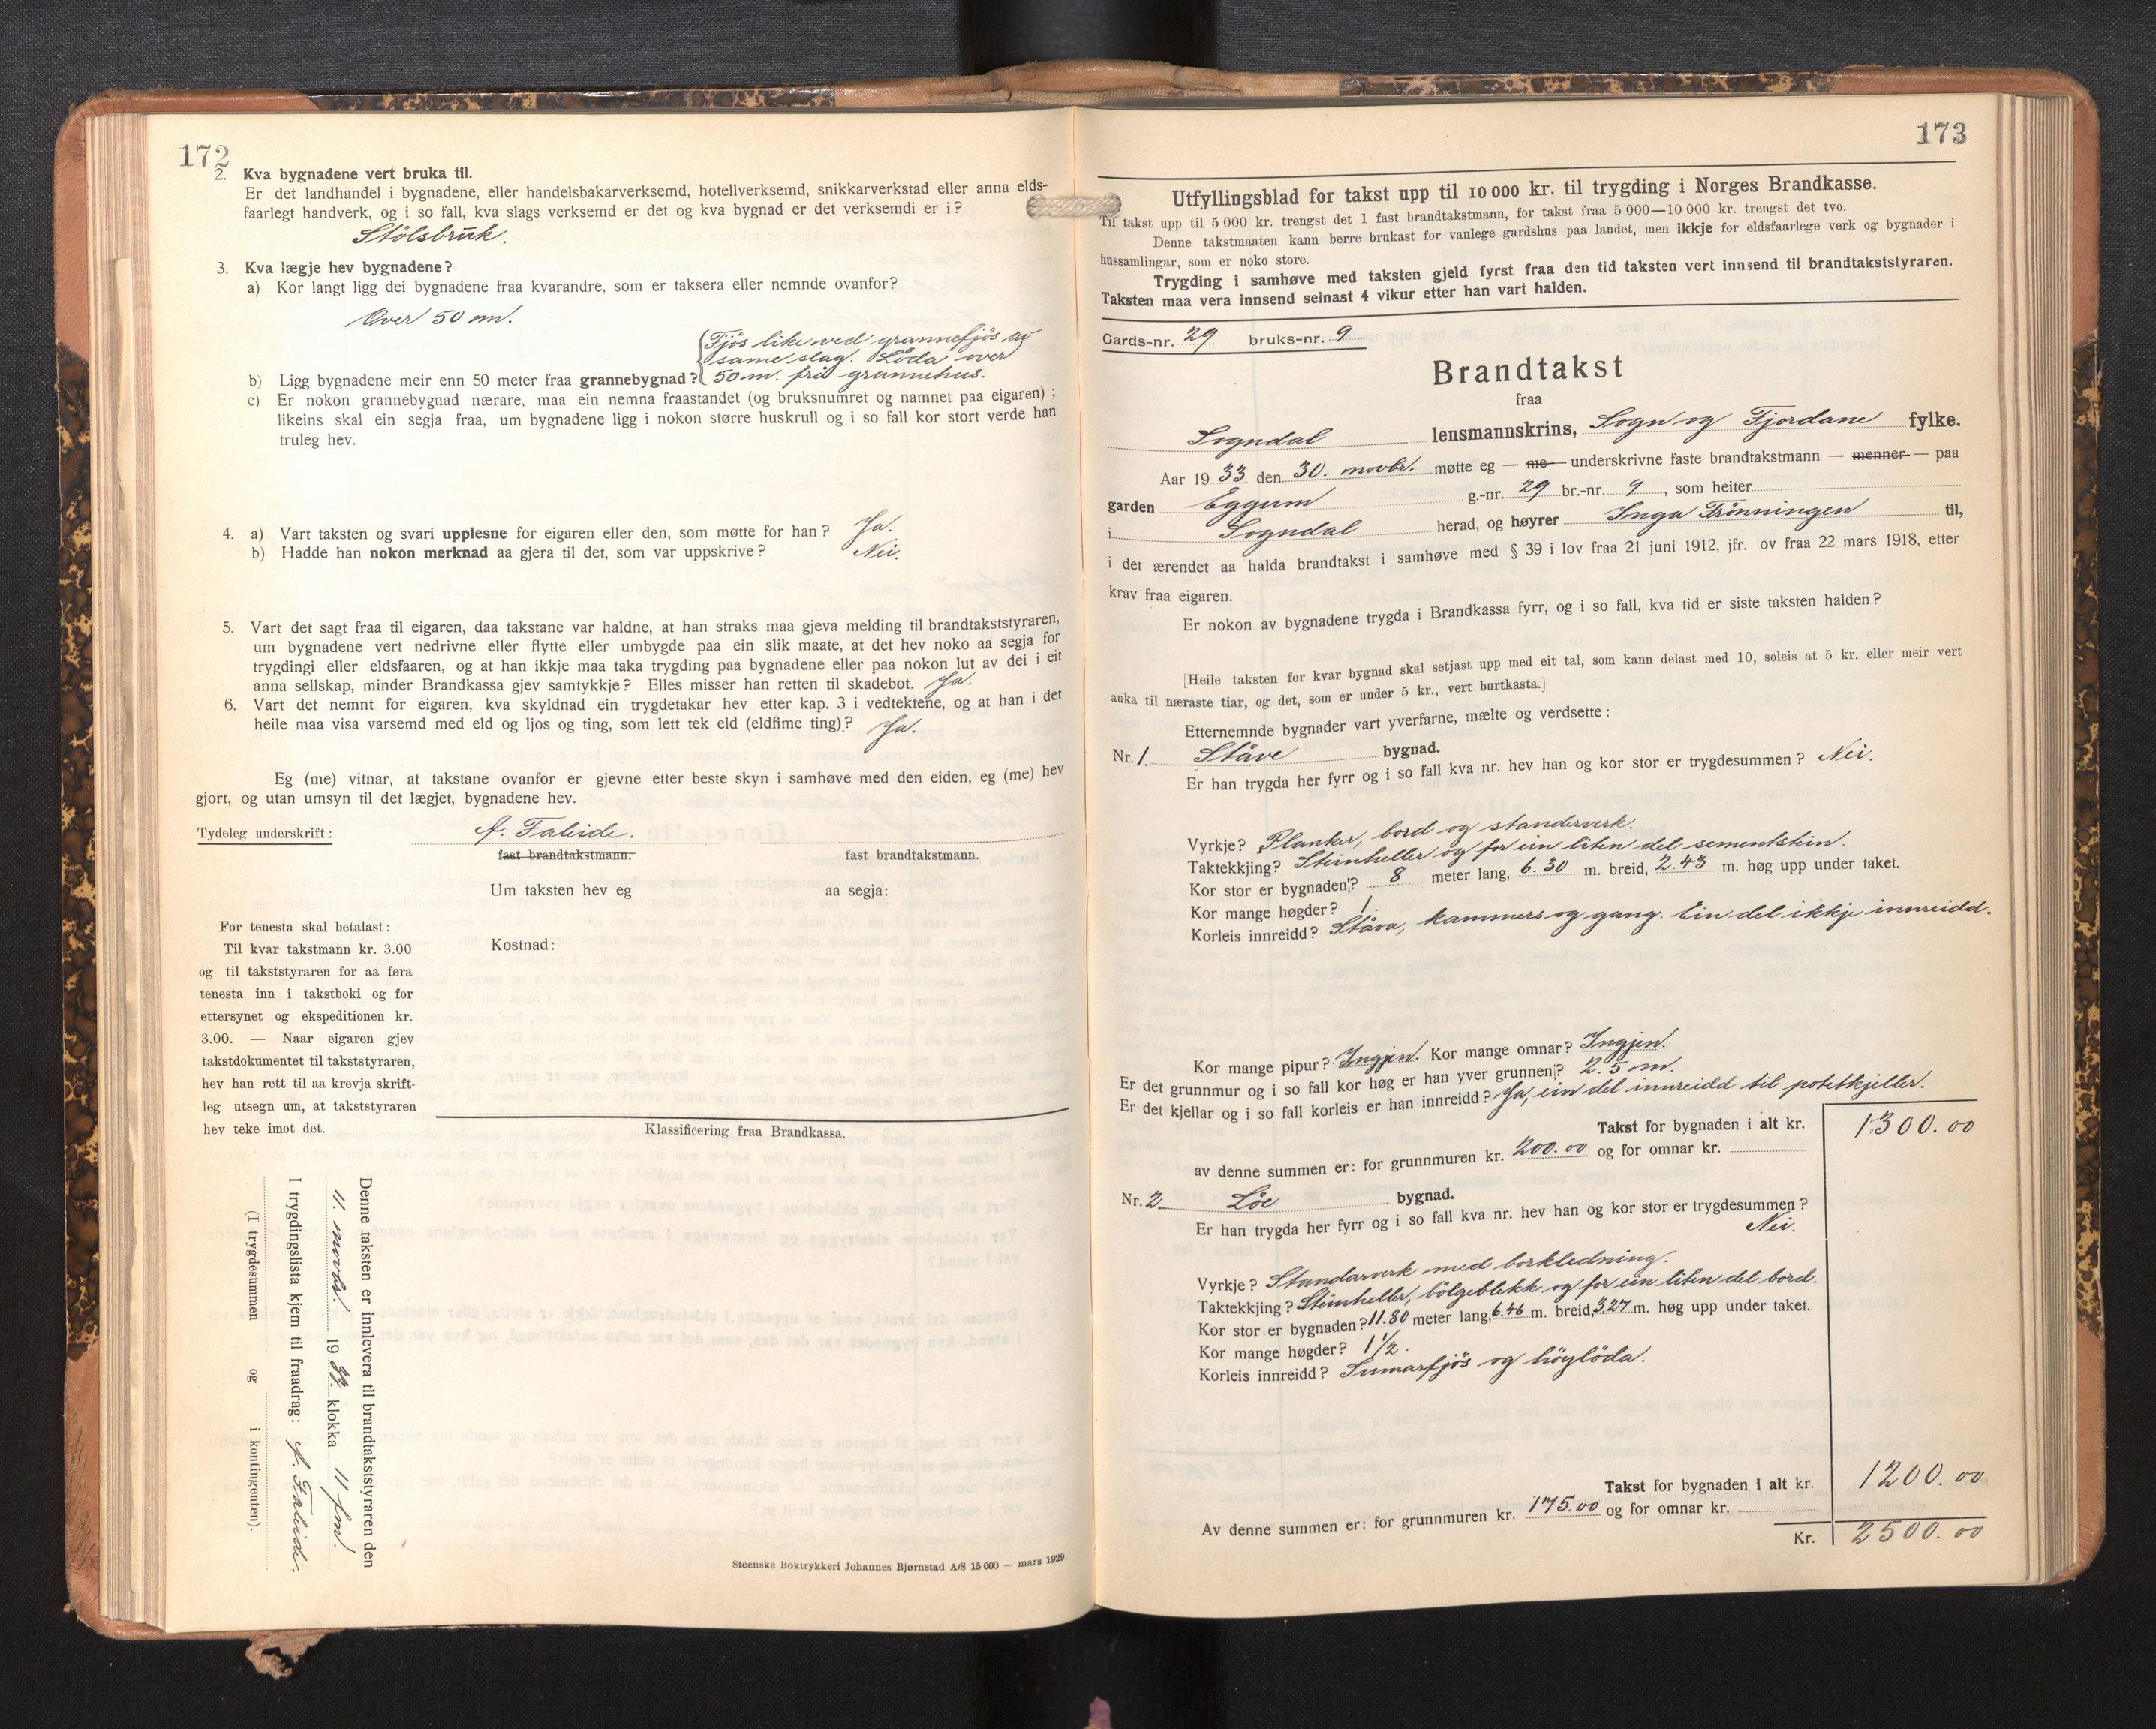 172
2. Kva bygnadene vert bruka til.
Er det landhandel i bygnadene, eller handelsbakarverksemd, hotellverksemd, snikkarverkstad eller anna elds-
faarlegt handverk, og i so fall, kva slags verksemd er det og kva bygnad er det verksemdi er i?
Stölsbruk.
3. Kva lægje hev bygnadene?
a) Kor langt ligg dei bygnadene fraa kvarandre, som er taksera eller nemnde ovanfor?
Over 50 m.
Fjös like ved grannefjös av
same slag. Löda over
b) Ligg bygnadene meir enn 50 meter fraa grannebygnad? 50 m. frå grannehus.
c) Er nokon grannebygnad nærare, maa ein nemna fraastandet (og bruksnumret og namnet paa eigaren);
likeins skal ein segja fraa, um bygnadene ligg i nokon større huskrull og i so fall kor stort verde han
truleg hev.
4. a) Vart taksten og svari upplesne for eigaren eller den, som møtte for han? Ja.
b) Hadde han nokon merknad aa gjera til det, som var uppskrive? Nei.
5. Vart det sagt fraa til eigaren, daa takstane var haldne, at han straks maa gjeva melding til brandtakststyraren,
um bygnadene vert nedrivne eller flytte eller umbygde paa ein slik maate, at det hev noko aa segja for
trygdingi eller eldsfaaren, og at han ikkje maa taka trygding paa bygnadene eller paa nokon lut av dei i eit
anna sellskap, minder Brandkassa gjev samtykkje? Elles misser han retten til skadebot. Ja.
6. Vart det nemnt for eigaren, kva skyldnad ein trygdetakar hev etter kap. 3 i vedtektene, og at han i det
heile maa visa varsemd med eld og ljos og ting, som lett tek eld (eldfime ting)? Ja.
Eg (me) vitnar, at takstane ovanfor er gjevne etter beste skyn i samhøve med den eiden, eg (me) hev
gjort, og utan umsyn til det lægjet, bygnadene hev.
Tydeleg underskrift: A. Faleide.
fast brandtakstmann. fast brandtakstmann.
Um taksten hev eg aa segja:
For tenesta skal betalast:
Til kvar takstmann kr. 3.00
og til takststyraren for aa føra
tenesta inn i takstboki og for
ettersynet og ekspeditionen kr.
3.00. — Naar eigaren gjev
takstdokumentet til takststyraren,
hev han rett til aa krevja skrift-
leg utsegn um, at takststyraren
hev teke imot det.
Kostnad:
Klassificering fraa Brandkassa.
Denne taksten er innlevera til brandtakststyraren den
11. novbr. 1933. klokka 11 fm.
I trygdingslista kjem til fraadrag: A. Faleide.
(I trygdesummen og i kontingenten).
Steenske Boktrykkeri Johannes Bjørnstad A/S 15 000 — mars 1929.
173
Utfyllingsblad for takst upp til 10 000 kr. til trygding i Norges Brandkasse.
Til takst upp til 5 000 kr. trengst det 1 fast brandtakstmann, for takst fraa 5 000—10 000 kr. trengst det tvo.
Denne takstmaaten kann berre brukast for vanlege gardshus paa landet, men ikkje for eldsfaarlege verk og bygnader i
hussamlingar, som er noko store.
Trygding i samhøve med taksten gjeld fyrst fraa den tid taksten vert innsend til brandtakststyraren.
Taksten maa vera innsend seinast 4 vikur etter han vart halden.
Gards-nr. 29 bruks-nr. 9
Brandtakst
fraa
Sogndal lensmannskrins, Sogn og Fjordane fylke.
Aar 1933 den 30. novbr. møtte eg — me — underskrivne faste brandtakstmann — menner — paa
garden Eggum g.-nr. 29 br.-nr. 9, som heiter
i Sogndal herad, og høyrer Inga Trönningen til,
i det ærendet aa halda brandtakst i samhøve med § 39 i lov fraa 21 juni 1912, jfr. ov fraa 22 mars 1918, etter
krav fraa eigaren.
Er nokon av bygnadene trygda i Brandkassa fyrr, og i so fall, kva tid er siste taksten halden?
[Heile taksten for kvar bygnad skal setjast upp med eit tal, som kann delast med 10, soleis at 5 kr. eller meir vert
auka til næraste tiar, og det, som er under 5 kr., vert burtkasta.]
Etternemnde bygnader vart yverfarne, mælte og verdsette:
Nr. 1. Ståve bygnad.
Er han trygda her fyrr og i so fall kva nr. hev han og kor stor er trygdesummen? Nei.
Vyrkje? Planker, bord og standerverk.
Taktekkjing? Steinheller og for ein liten del sementstein.
Kor stor er bygnaden? 8 meter lang, 6.30 m. breid, 2.43 m. høg upp under taket.
Kor mange høgder? 1.
Korleis innreidd? Ståva, kammers og gang. Ein del ikkje innreidd.
Kor mange pipur? Ingjen. Kor mange omnar? Ingjen.
Er det grunnmur og i so fall kor høg er han yver grunnen? 2.5 m.
Er det kjellar og i so fall korleis er han innreidd? Ja, ein del innreidd til potetkjeller.
Takst for bygnaden i alt kr. 1300.00
av denne summen er: for grunnmuren kr. 200.00 og for omnar kr.
Nr. 2 Löe bygnad.
Er han trygda her fyrr og i so fall kva nr. hev han og kor stor er trygdesummen?
Nei.
Vyrkje? Standarverk med borkledning.
Taktekkjing? Steinheller, bölgeblekk og for ein liten del bord.
Kor stor er bygnaden? 11.80 meter lang, 6.46 m. breid, 3.27 m. høg upp under taket.
Kor mange høgder? 1 1/2.
Korleis innreidd? Sumarfjös og höylöda.
Takst for bygnaden i alt kr. 1200.00
Av denne summen er: for grunnmuren kr. 175.00 og for omnar kr.
Kr. 2500.00